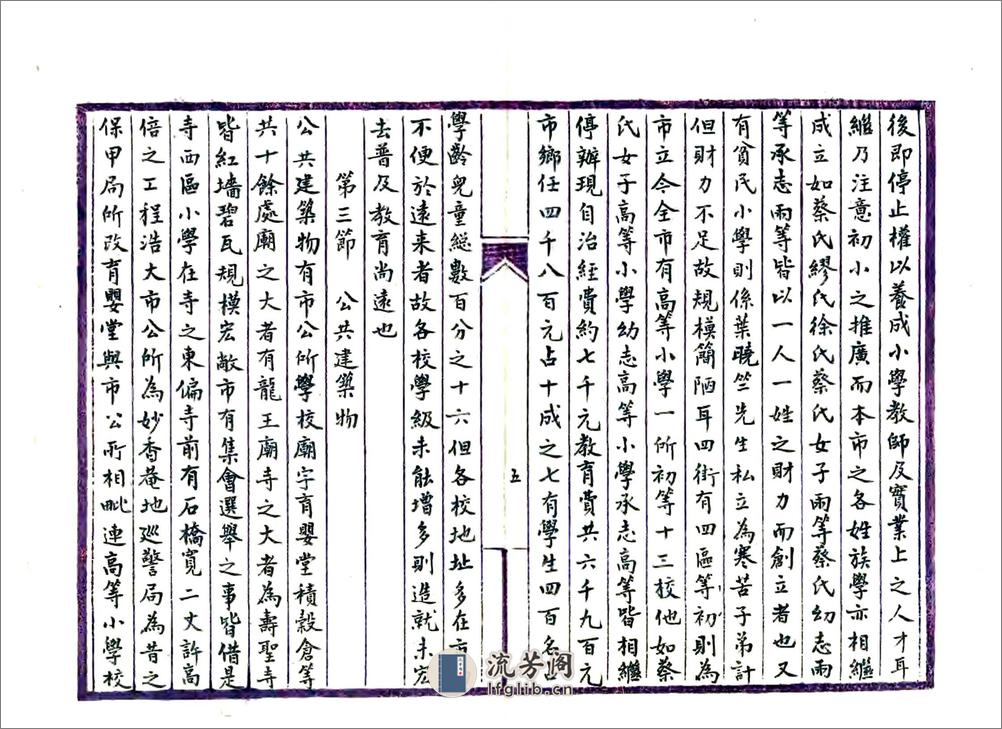 後即停止權以養成小學教師及實業上之人才耳
繼乃注意初小之推廣而本市之各姓族學亦相繼
成立如蔡氏繆氏徐氏蔡氏女子兩等蔡氏幼志兩
等承志兩等皆以一人一姓之財力而創立者也又
有貧民小學則係葉曉竺先生私立為寒苦子弟計
但財力不足故規模簡陋耳四街有四區等初則為
市立今全市有高等小學一所初等十三校他如蔡
氏女子高等小學幼志高等小學承志高等皆相繼
停辦現自治經費約七千元教育費共六千九百元
市鄉任四千八百元占十成之七有學生四百名
五
學齡兒童總數百分之十六但各校地址多在市
不便於遠來者故各校學級未能增多則造就未宏
去普及教育尚遠也
第三節 公共建築物
公共建築物有市公所學校廟宇育嬰堂積穀倉等
共十餘處廟之大者有龍王廟寺之大者為壽聖寺
皆紅墻碧瓦規模宏敞市有集會選舉之事皆借是
寺西區小學在寺之東偏寺前有石橋寬二丈許高
倍之工程浩大市公所為妙香菴地巡警局為昔之
保甲局所改育嬰堂與市公所相毗連高等小學校
流芳閣
lfglib.cn